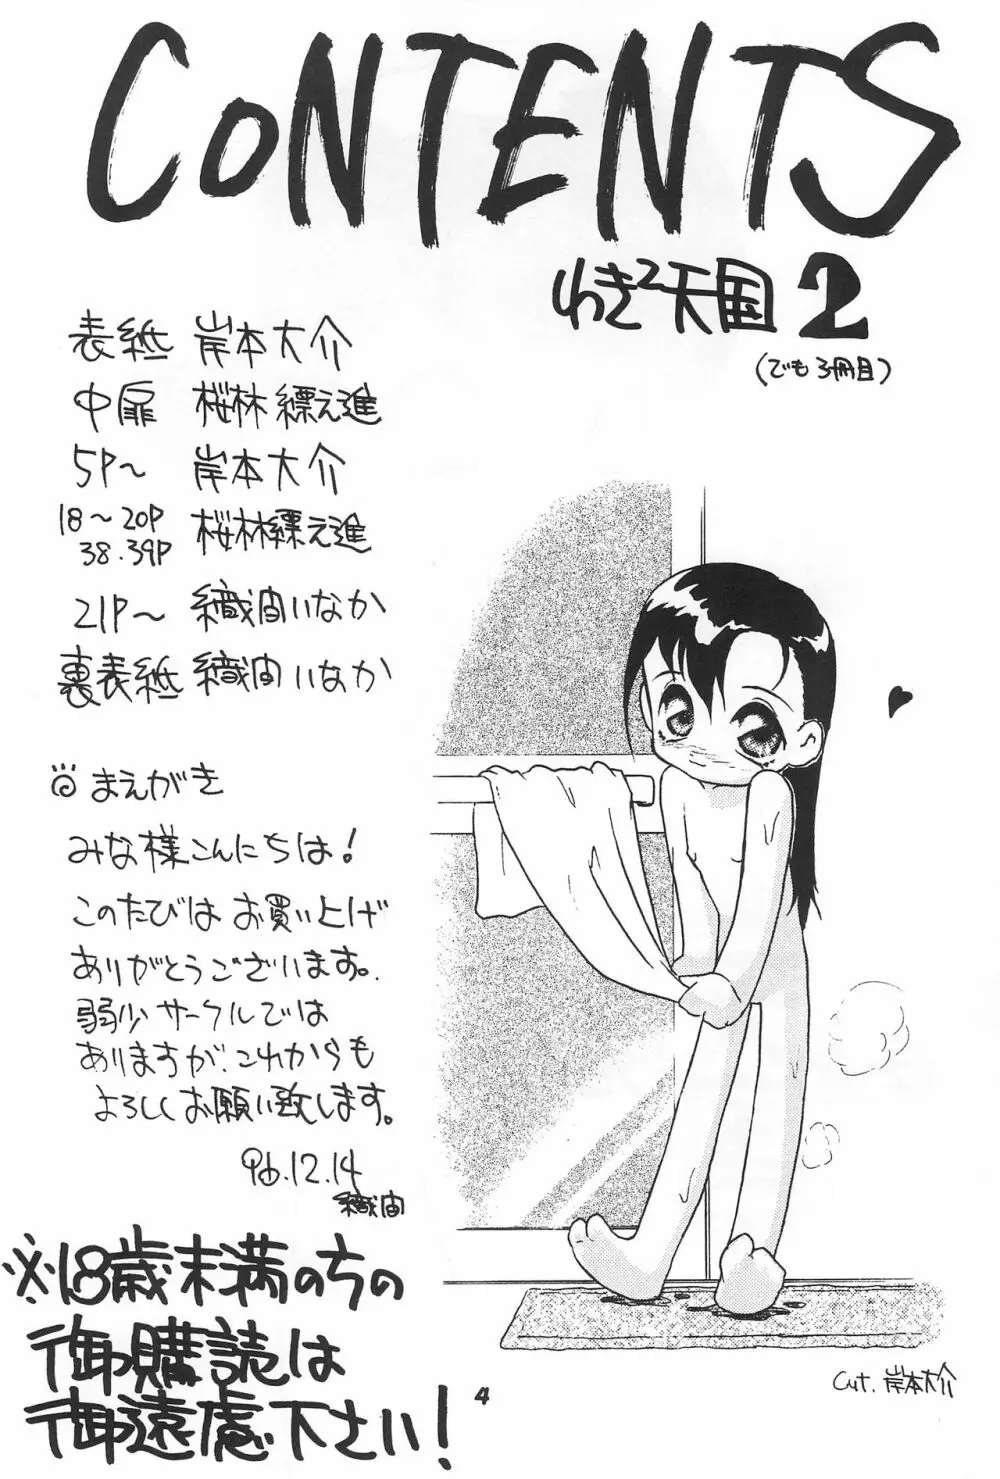 CONTENTS
わき²天国 2
(でも3冊目)
表紙 岸本大介
中扉 桜林縹え進
5P～ 岸本大介
18～20P 38.39P 桜林縹え進
21P～ 織間いなか
裏表紙 織間いなか
まえがき
みな様こんにちは!
このたびはお買い上げ
ありがとうございます。
弱少サークルでは
ありますが、これからも
よろしくお願い致します。
96.12.14
織間
※18歳末満のちの
御購読は
御遠慮下さい!
4
Cut. 岸本大介